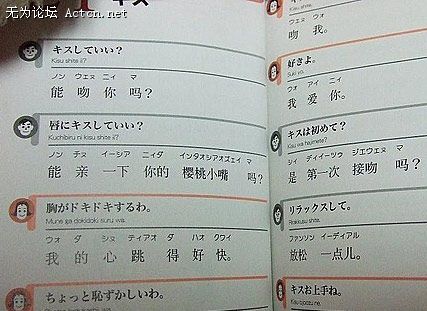 无为论坛 Actcn.net
キス
キスしていい?
Kisu shite ii?
ノン ウェヌ ニィ マ
能 吻 你 吗?
唇にキスしていい?
Kuchibiru ni kisu shite ii?
ノン チヌ イーシア ニィダ インタオシアオズェイ マ
能 亲 一下 你的 樱桃小嘴 吗?
胸がドキドキするわ。
Mune ga dokidoki suru wa.
ウォ ダ シヌ ティアオ ダ ハオ クワイ
我 的 心 跳 得 好 快。
ちょっと恥ずかしいわ。
ウェヌ ウォ
吻 我。
好きよ。
Suki yo.
ウォ アイ ニィ
我 爱 你。
キスは初めて?
Kisu wa hajimete?
シィ ディイーツゥ ジエウェヌ マ
是 第一次 接吻 吗?
リラックスして。
Rirakkusu shite.
ファンソン イーディアル
放松 一点儿。
キスお上手ね。
Kisu ojozu ne.